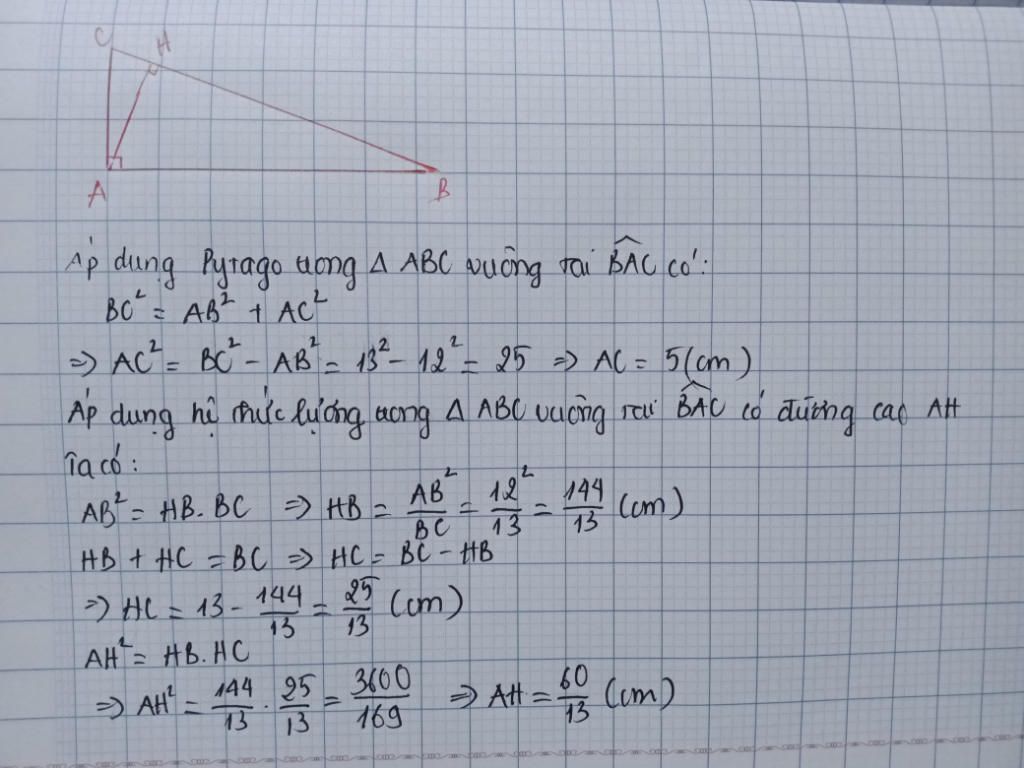 C H
A B
Áp dụng Pytago trong Δ ABC vuông tại \widehat{BAC} có:
BC² = AB² + AC²
⇒ AC² = BC² - AB² = 13² - 12² = 25 ⇒ AC = 5(cm)
Áp dụng hệ thức lượng trong Δ ABC vuông tại \widehat{BAC} có đường cao AH
Ta có:
AB² = HB. BC ⇒ HB = AB²/BC = 12²/13 = 144/13 (cm)
HB + HC = BC ⇒ HC = BC - HB
⇒ HC = 13 - 144/13 = 25/13 (cm)
AH² = HB. HC
⇒ AH² = 144/13 . 25/13 = 3600/169 ⇒ AH = 60/13 (cm)